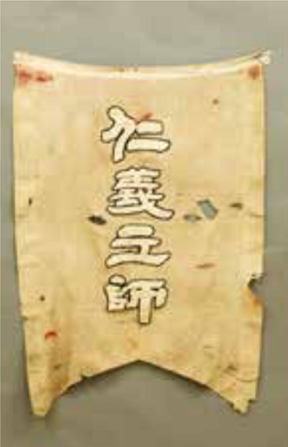 仁義之師